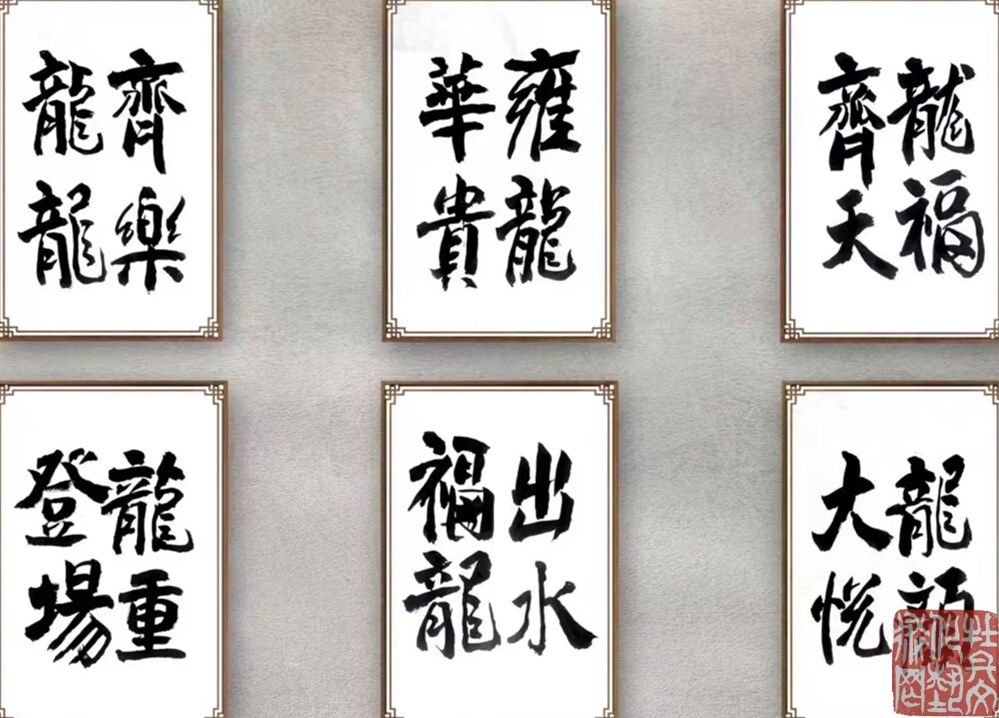 齊樂
龍龍
雍龍
華貴
龍福
齊天
龍重
登場
出水
福龍
龍顏
大悅